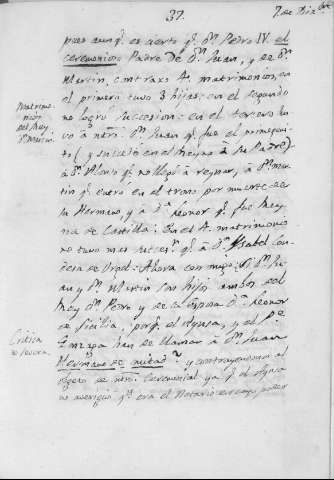 37.
7 de Dizbre
pues aunq.e es cierto q.e D.n Pedro IV. el
ceremonioso Padre de D.n Juan, y de D.n
Martin, contraxo 4. matrimonios, en
el primero tuvo 3 hijas: en el segundo
no logrò succesion: en el tercero tu
vo à ntro. D.n Juan q.e fue el primogeni-
to (y succediò en el Reyno à su Padre)
à D.n Alonso q.e no llegò à reynar, à D.n Mar
tin q.e entrò en el trono por muerte de
su Hermano, y à D.a Leonor q.e fue Rey
na de Castilla: En el 4. matrimonio
no tuvo mas succes.n q.e à D.a Ysabel Con
desa de Urgel: Ahora con migo: Si D.n Ju
an y D.n Martin son hijos ambos del
Rey D.n Pedro y de su Esposa D.a Leonor
de Sicilia, porq.e el Aynsa, y el P.e
han de llamar à D.n Juan
Hermano de mitad? y contrayendonos al
de ntro. Ceremonial ya q.e el Aynsa
no averiguò q.n era el Notario en cuyo poder
Matrimo-
nios
del Rey
D.n Martin
Critica